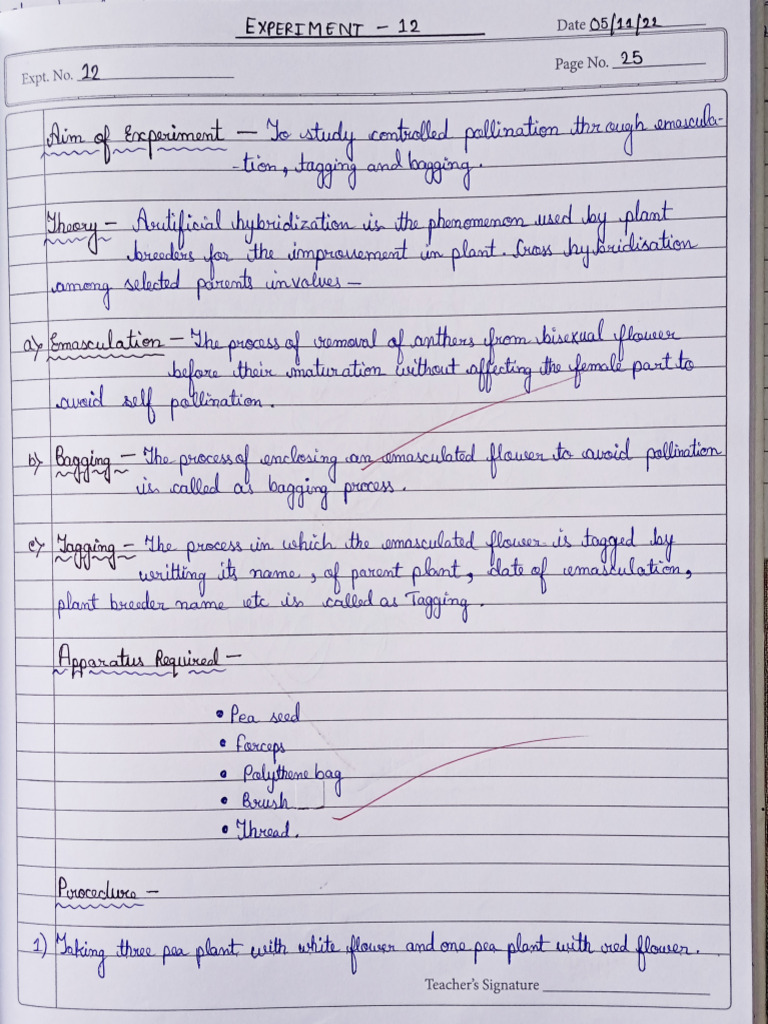 EXPERIMENT - 12
Date 05/11/22
Expt. No. 12
Page No. 25
Aim of Experiment - To study controlled pollination through emascula-
-tion, tagging and bagging.
Theory - Artificial hybridization is the phenomenon used by plant
breeders for the improvement in plant. Cross hybridisation
among selected parents involves -
a) Emasculation - The process of removal of anthers from bisexual flower
before their maturation without affecting the female part to
avoid self pollination.
b) Bagging - The process of enclosing an emasculated flower to avoid pollination
is called as bagging process.
c) Tagging - The process in which the emasculated flower is tagged by
writting its name, of parent plant, date of emasculation,
plant breeder name etc is called as Tagging.
Apparatus Required -
• Pea seed
• Forceps
• Polythene bag
• Brush
• Thread.
Procedure -
1) Taking three pea plant with white flower and one pea plant with red flower.
Teacher's Signature